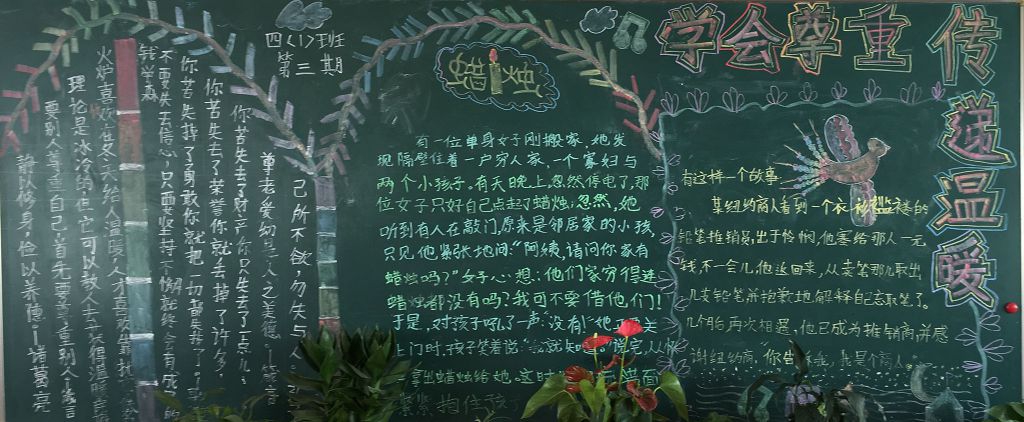 学会尊重 传递温暖
四(1)班班
第三期
有一位单身女子刚搬家,她发
现隔壁住着一户穷人家,一个寡妇与
两个小孩子。有天晚上,忽然停电了,那
位女子只好自己点起了蜡烛,忽然,她
听到有人在敲门,原来是邻居家的小孩,
只见他紧张地问:“阿姨,请问你家有
蜡烛吗?”女子心想:他们家穷得连
蜡烛都没有吗?我可不要借他们!
于是,对孩子吼了一声:“没有!”她
上门时,孩子笑着说:
拿出蜡烛给她。这时
紧紧抱住孩
有这样一个故事
某纽约商人看到一个衣衫褴褛的
铅笔推销员,出于怜悯,他塞给那人一元
钱,不一会儿,他返回来,从卖笔那儿取出
几支铅笔并抱歉地解释自己忘取笔了。
几个月后再次相遇,他已成为推销商,并感
谢纽约商,“你告
我是个商人。”
己所不欲,勿失与人
尊老爱幼
你若失去了财产你只失去了一点儿;
你若失去了荣誉你就丢掉了许多;
你若失掉了勇敢你就把一切都失掉了
不要失去信心,只要坚持不懈就终会有成
钱学森
火炉喜欢在冬天给人温暖,人才喜欢靠
理论是冰冷的,但它可以教人去获得温暖
要别人尊重自己,首先要尊重别人
静以修身,俭以养德——诸葛亮